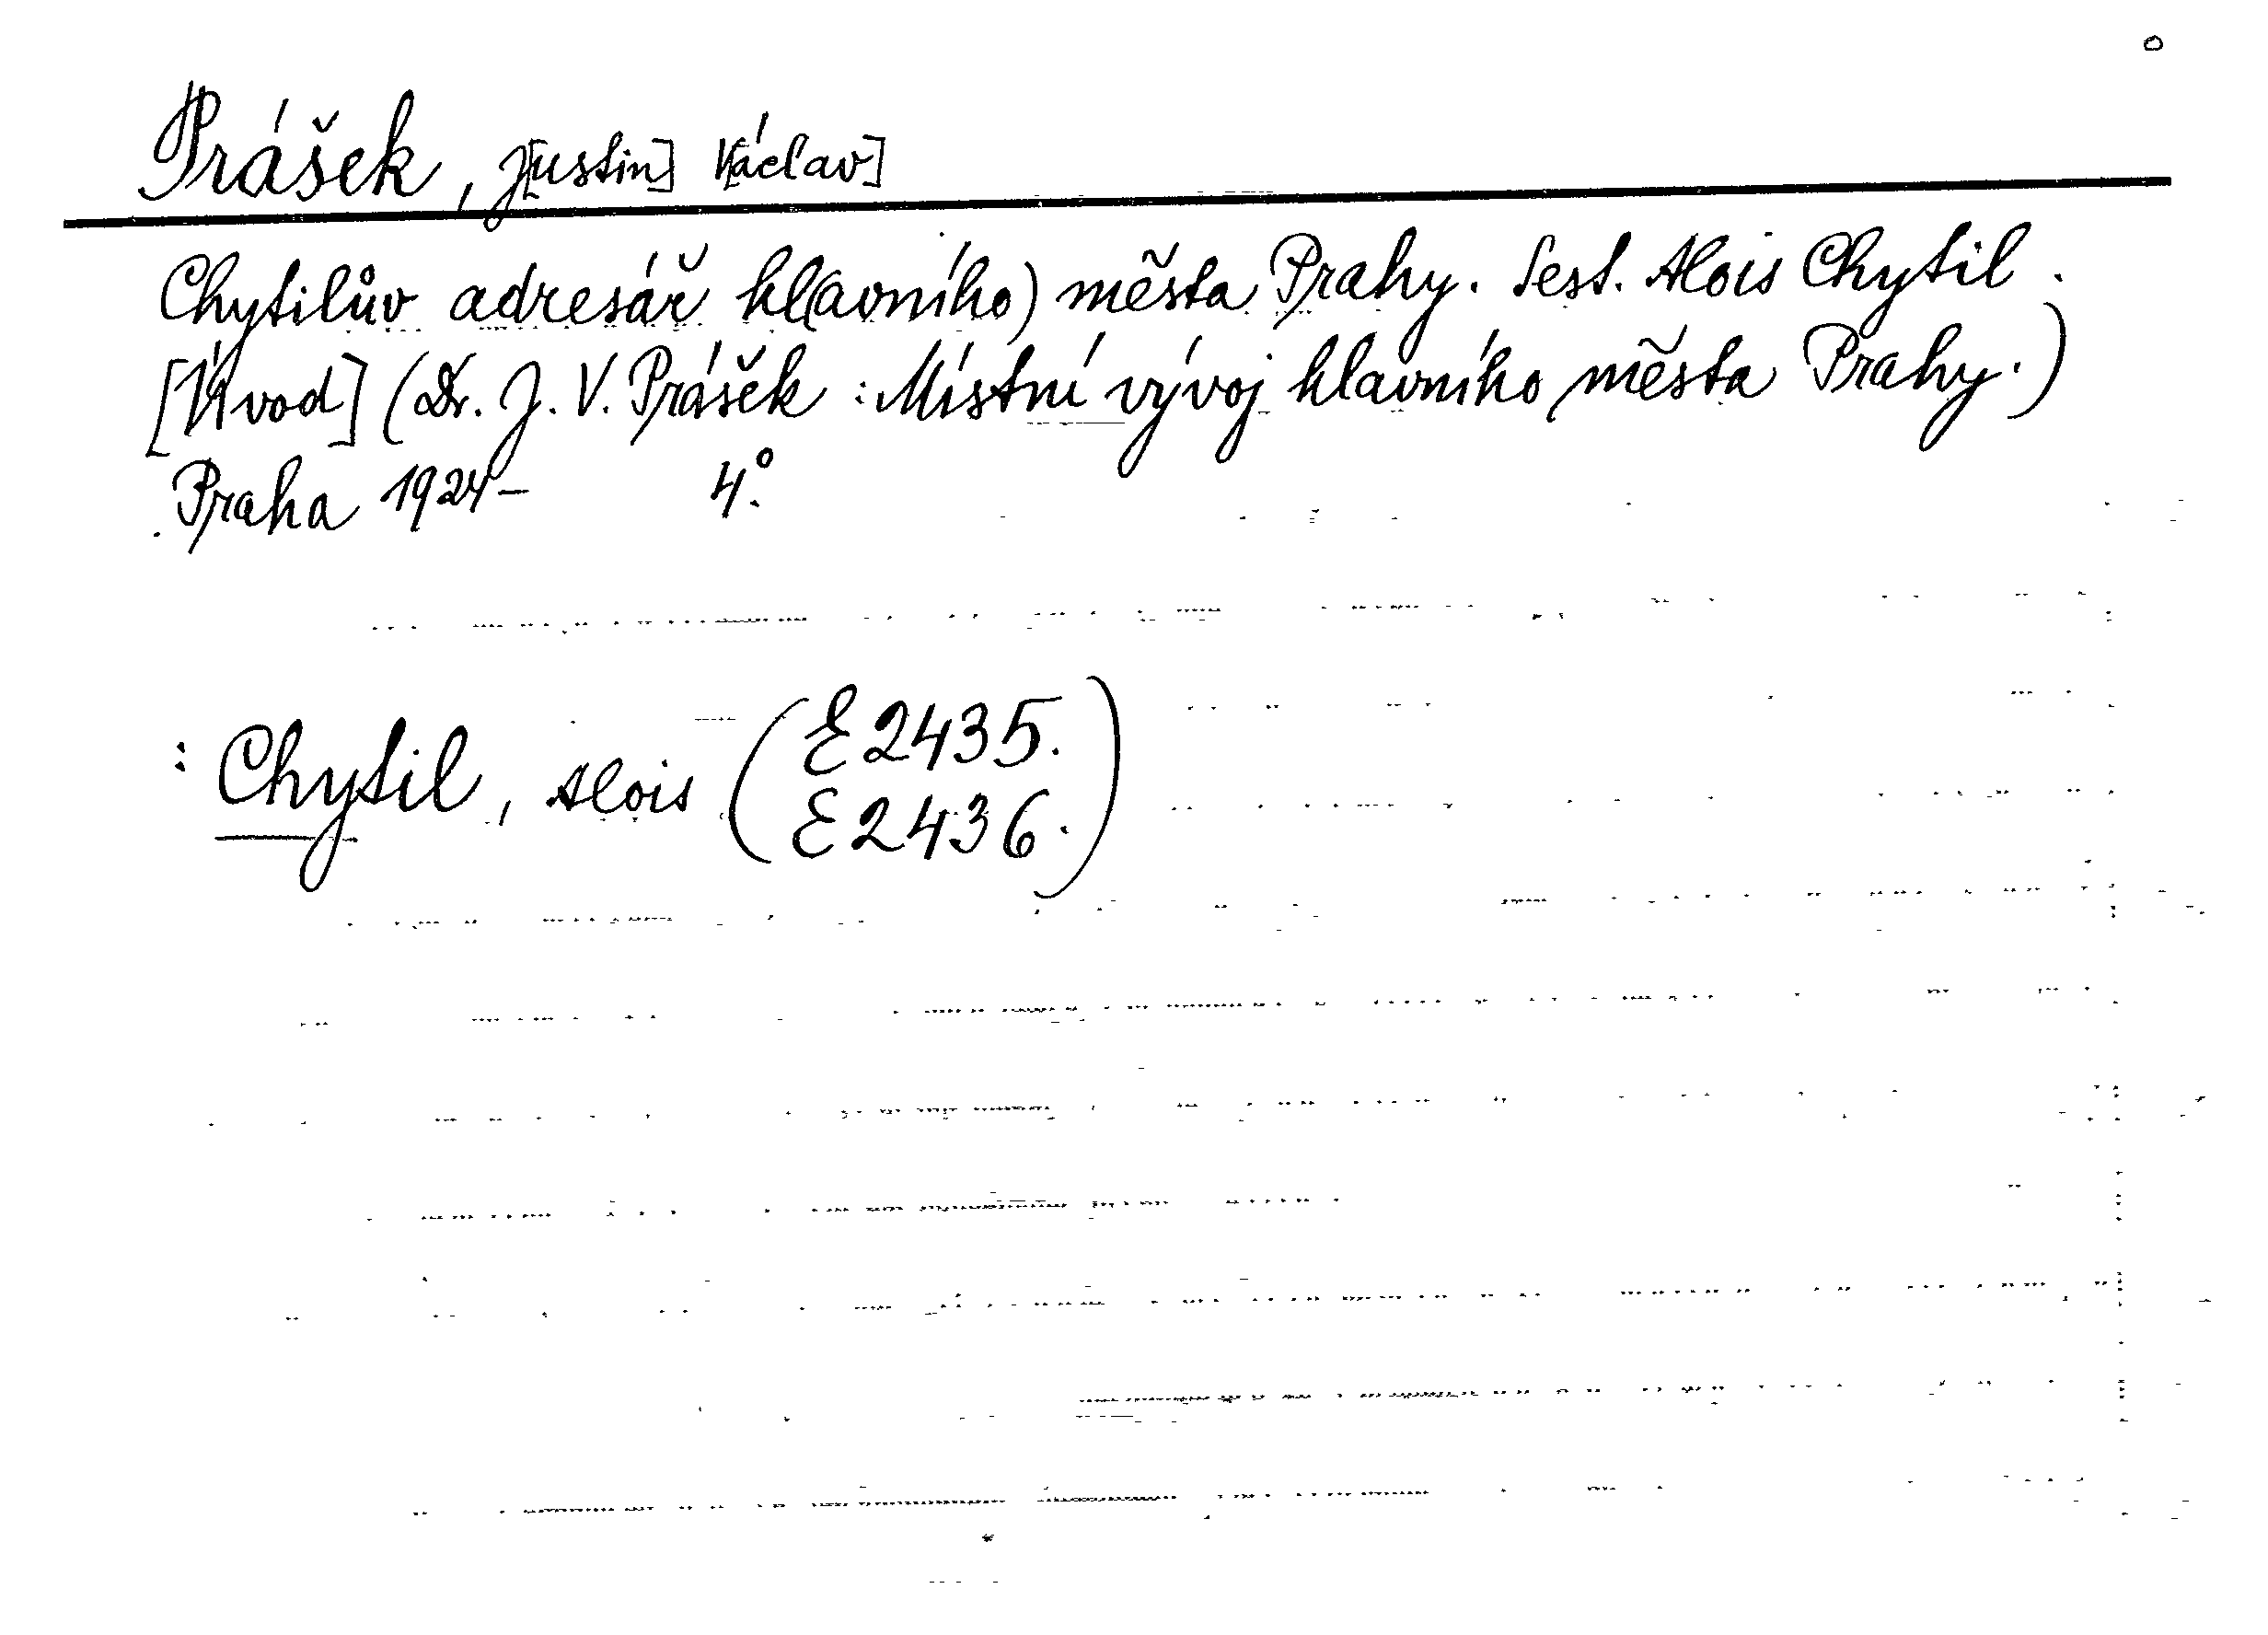 Prášek, J[ustin] V[áclav]
Chytilův adresář hl(avního) města Prahy. Sest. Alois Chytil.
[Úvod] (Dr. J. V. Prášek: Místní vývoj hlavního města Prahy.)
Praha 1924- 4°.
: Chytil, Alois (E 2435.
E 2436.)